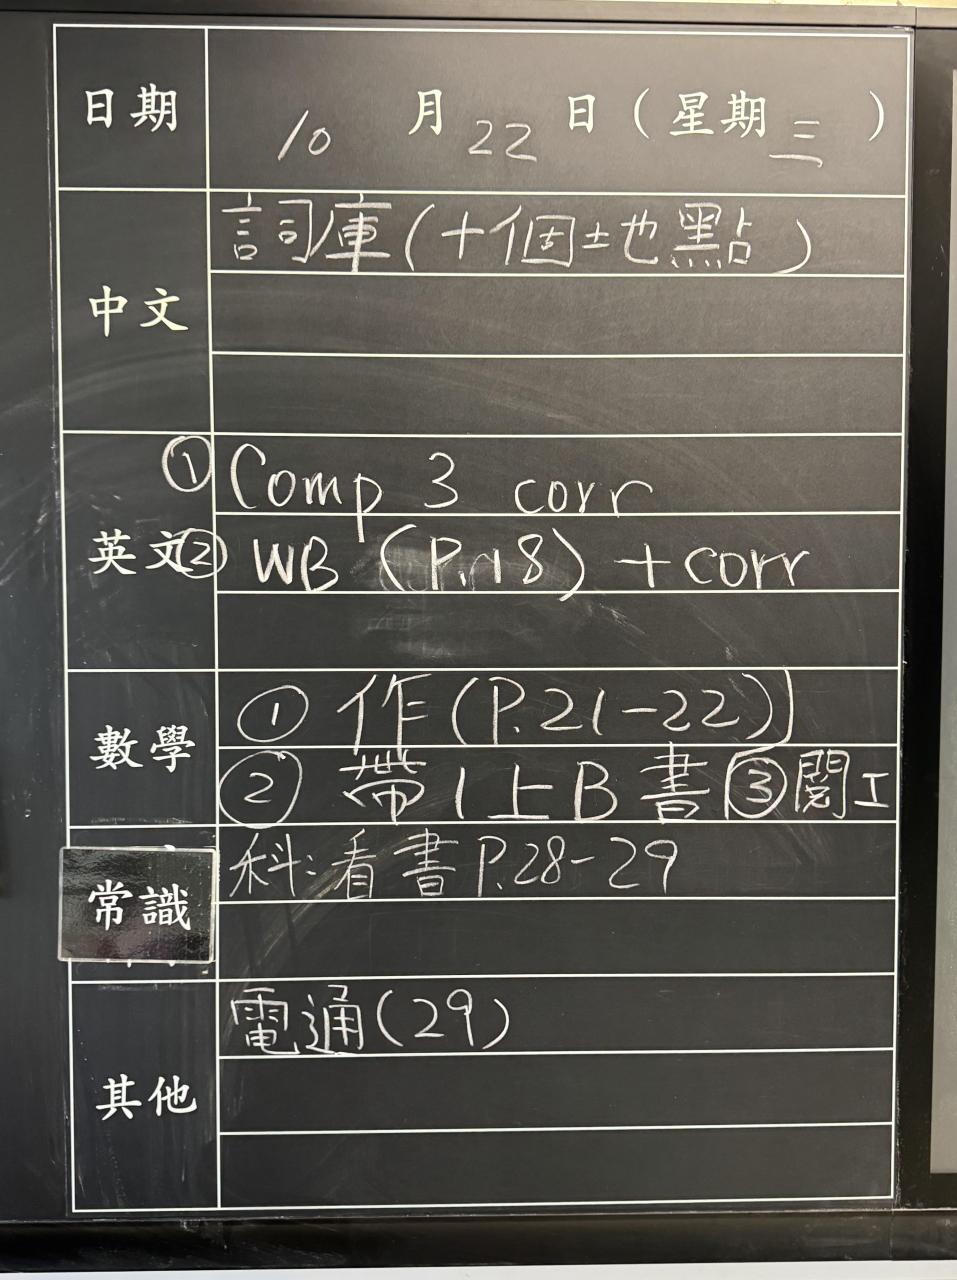 日期 10 月 22 日（星期 三 ）
中文 詞庫(十個地點)
英文
① Comp 3 corr
② WB (P.18) + corr
數學 ① 作(P.21-22)
② 帶1上B書 ③ 閱工
常識 科:看書P.28-29
其他 電通(29)